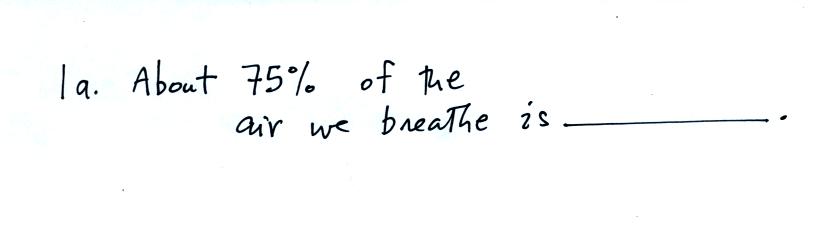 1a. About 75% of the
air we breathe is __________.